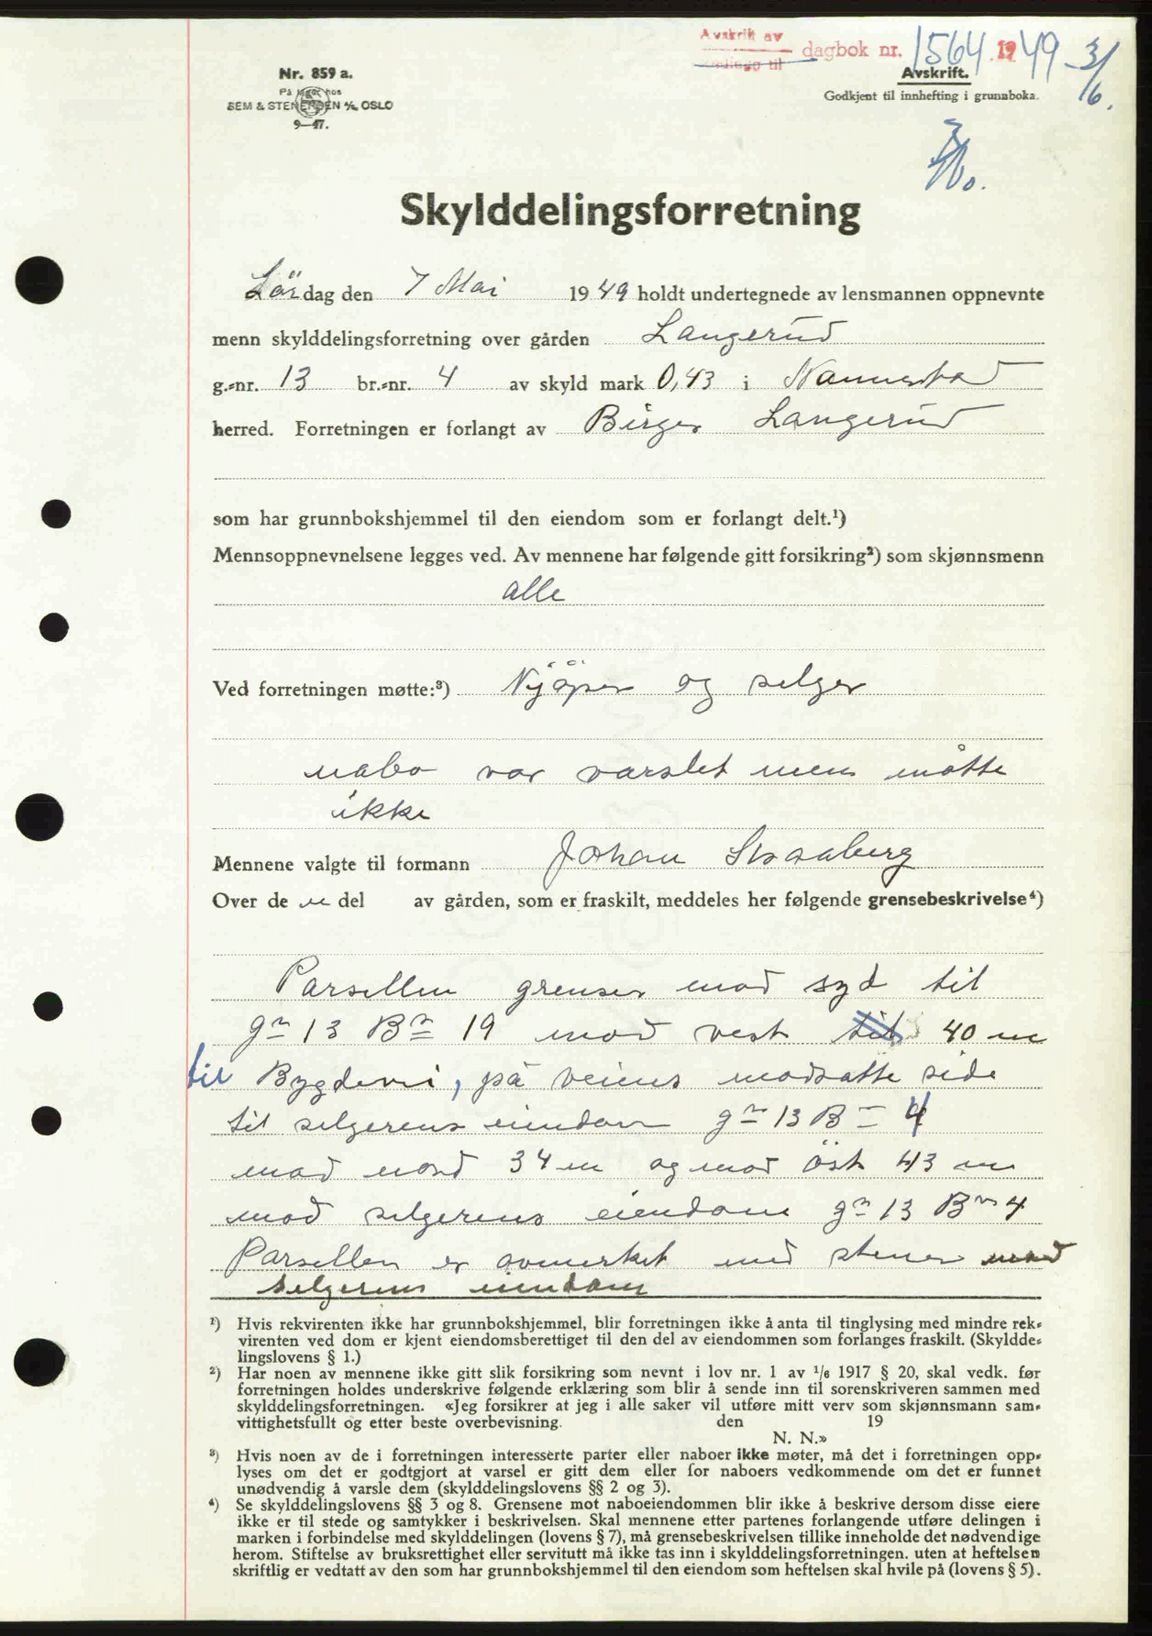 Avskrift av
dagbok nr. 1564 1949 3/6.
Nr. 859 a.
På lager hos
SEM & STENERSEN A/S, OSLO
9—47.
Avskrift.
Godkjent til innhefting i grunnboka.
Skylddelingsforretning
Lördag den 7 Mai 1949 holdt undertegnede av lensmannen oppnevnte
menn skylddelingsforretning over gården Langerud
g.-nr. 13 br.-nr. 4 av skyld mark 0,43 i Nannestad
herred. Forretningen er forlangt av Birger Langerud
som har grunnbokshjemmel til den eiendom som er forlangt delt.¹)
Mennsoppnevnelsene legges ved. Av mennene har følgende gitt forsikring²) som skjønnsmenn
alle
Ved forretningen møtte:³) Kjöper og selger
nabo var varslet men møtte
ikke
Mennene valgte til formann Johan Straaberg
Over de n del av gården, som er fraskilt, meddeles her følgende grensebeskrivelse⁴)
Parsellen grenser mod syd til
gnr 13 Bnr 19 mod vest til 40 m
til Bygdevei, på veiens modsatte side
til selgerens eiendom gnr 13 Bnr 4
mod nord 34 m og mod öst 43 m
mod selgerens eiendom gnr 13 Bnr 4
Parsellen er avmerket med stener mod
selgerens eiendom
¹) Hvis rekvirenten ikke har grunnbokshjemmel, blir forretningen ikke å anta til tinglysing med mindre rek-
virenten ved dom er kjent eiendomsberettiget til den del av eiendommen som forlanges fraskilt. (Skyldde-
lingslovens § 1.)
²) Har noen av mennene ikke gitt slik forsikring som nevnt i lov nr. 1 av 1/6 1917 § 20, skal vedk. før
forretningen holdes underskrive følgende erklæring som blir å sende inn til sorenskriveren sammen med
skylddelingsforretningen. «Jeg forsikrer at jeg i alle saker vil utføre mitt verv som skjønnsmann sam-
vittighetsfullt og etter beste overbevisning. den 19
N. N.»
³) Hvis noen av de i forretningen interesserte parter eller naboer ikke møter, må det i forretningen opp-
lyses om det er godtgjort at varsel er gitt dem eller for naboers vedkommende om det er funnet
unødvendig å varsle dem (skylddelingslovens §§ 2 og 3).
⁴) Se skylddelingslovens §§ 3 og 8. Grensene mot naboeiendommen blir ikke å beskrive dersom disse eiere
ikke er til stede og samtykker i beskrivelsen. Skal mennene etter partenes forlangende utføre delingen i
marken i forbindelse med skylddelingen (lovens § 7), må grensebeskrivelsen tillike inneholde det nødvendige
herom. Stiftelse av bruksrettighet eller servitutt må ikke tas inn i skylddelingsforretningen. uten at heftelsen
skriftlig er vedtatt av den som har grunnbokshjemmel til den eiendom som heftelsen skal hvile på (lovens § 5).